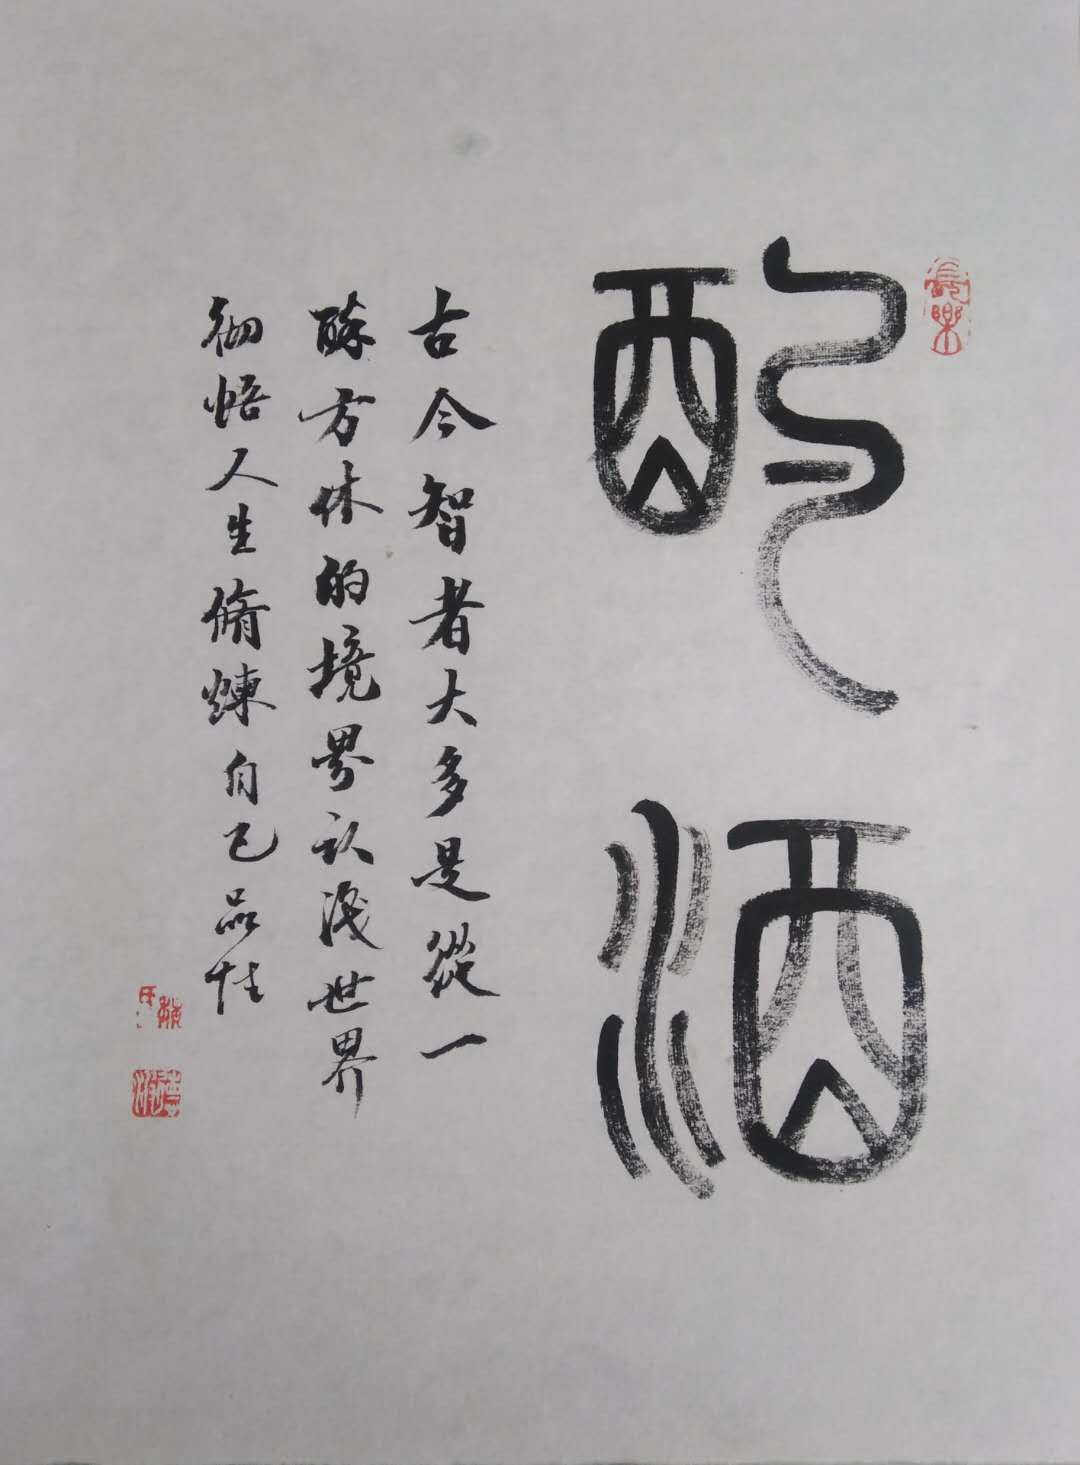 長樂
酌酒
古今智者大多是從一
醉方休的境界認淺世界
彻悟人生脩煉自己品性